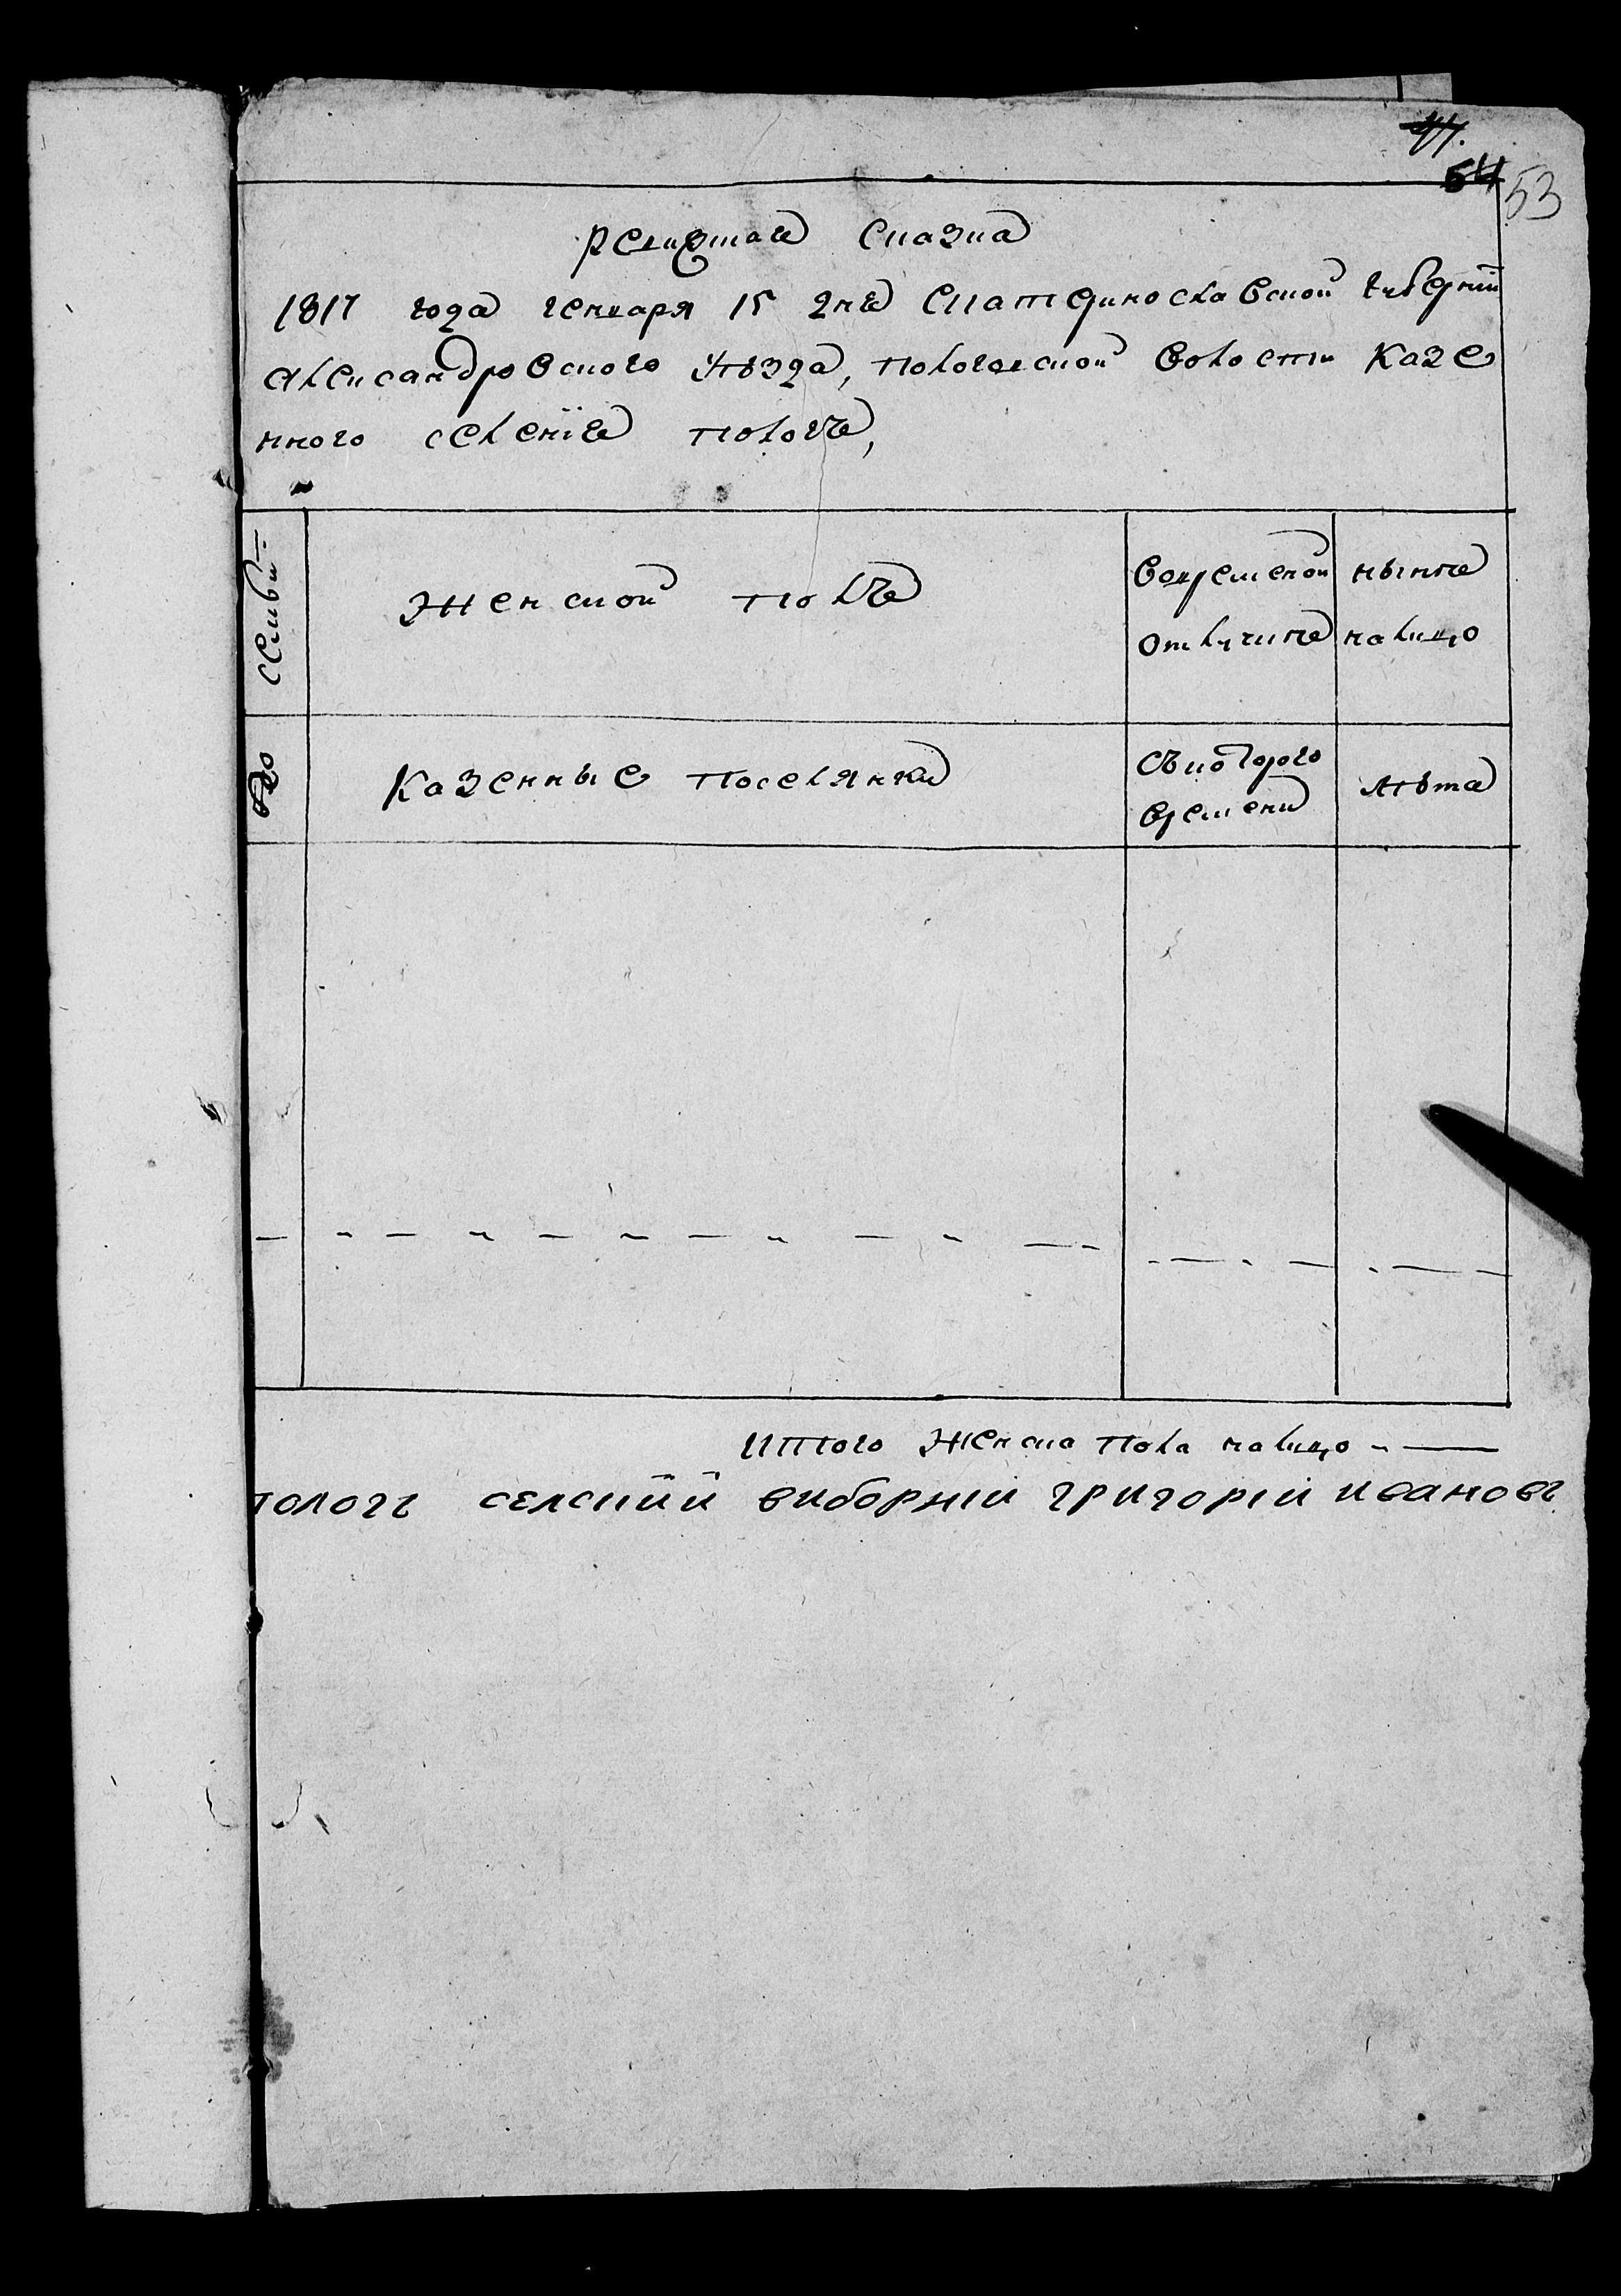 54 53
Ревизская Сказка
1817 года генваря 15 дня Екатеринославской губернїи
Александровского уѣзда, пологовской волости Казе
нного селенїя пологъ,
семьи
Женской полъ
вовременой отлучкѣ
нынѣ налицо
№
Казенные поселянки
съкоторого времени
лѣта
Итого женска пола налицо
пологъ селскїй виборнїй григорїй ивановъ